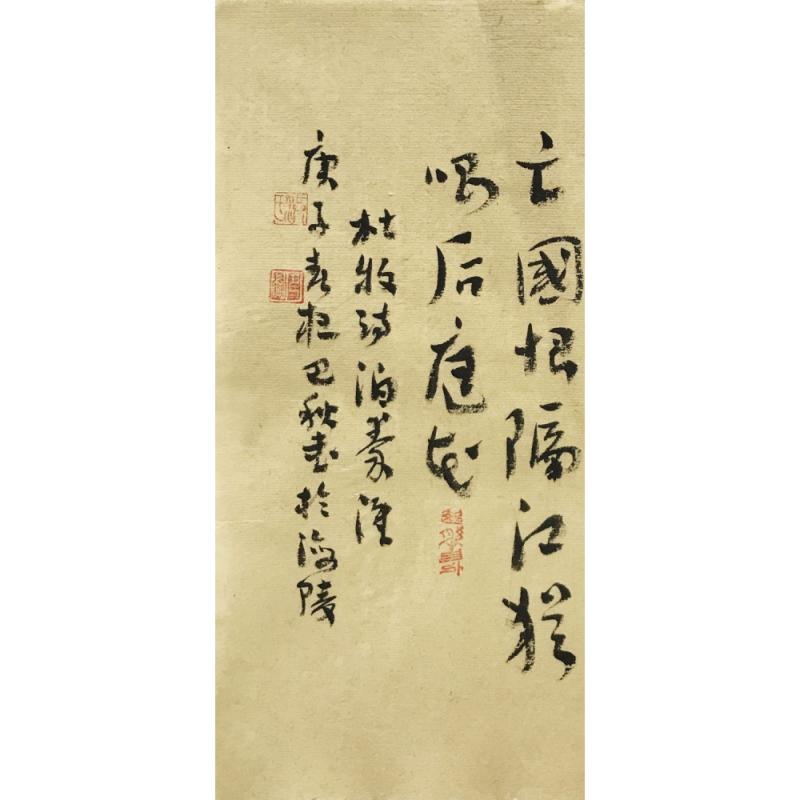 亡國恨隔江犹
唱后庭花
杜牧诗泊秦淮
庚子春巴秋书於海陵